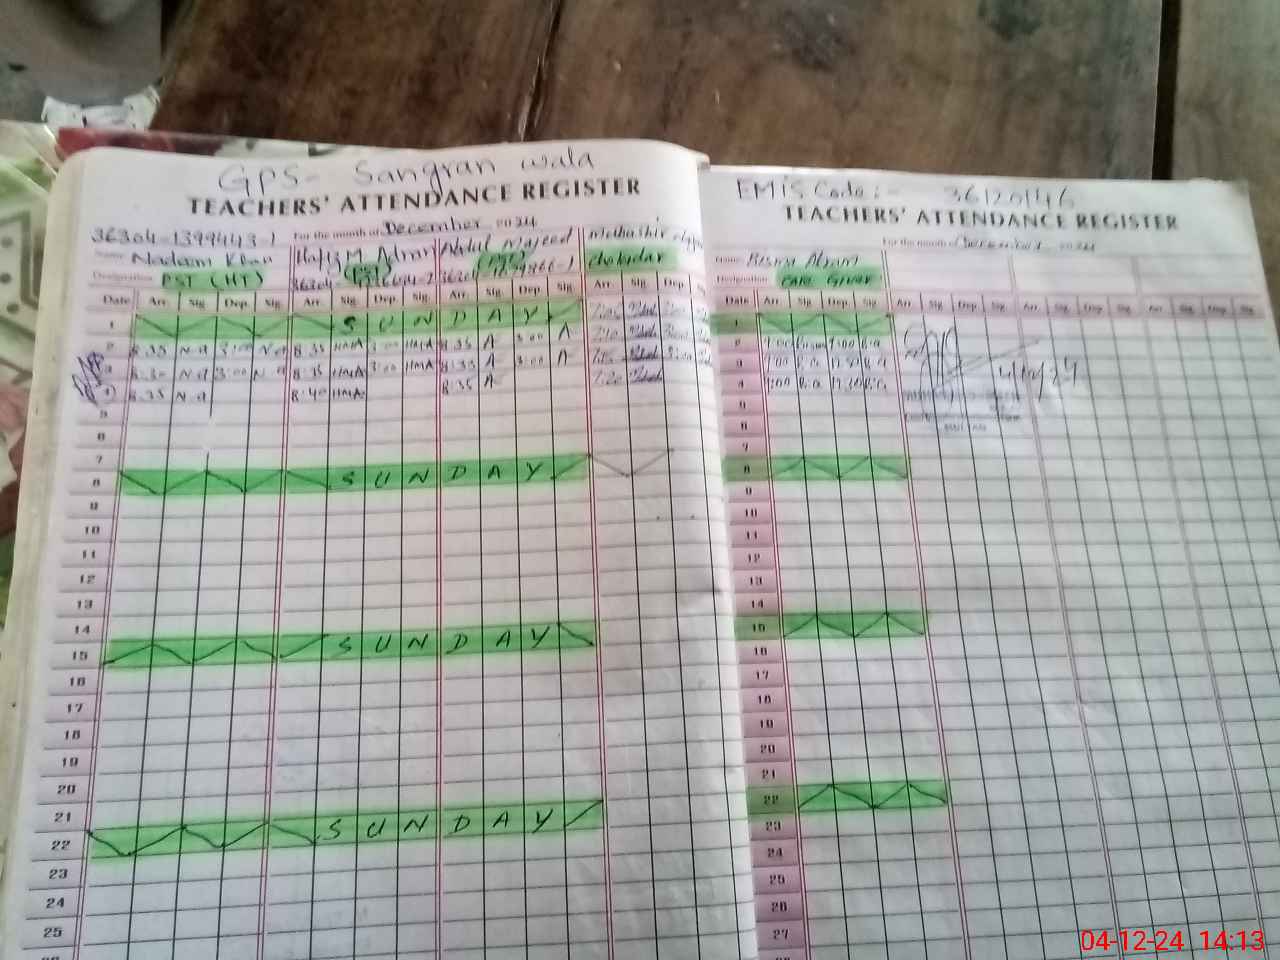 GPS- Sangran wala
TEACHERS' ATTENDANCE REGISTER
For the month of December 2024
36304-1399443-1
Name Nadeem Khan
Hafiz M. Adnan
Abdul Majeed
Mubashir
Designation PST (HT)
(PST)
(PST)
Chokidar
Date Arr. Sig. Dep. Sig. Arr. Sig. Dep. Sig. Arr. Sig. Dep. Sig. Arr. Sig. Dep.
1 SUNDAY
2 8:35 N.a 3:00 N.a 8:35 HMA 3:00 HMA 8:35 A 3:00 A 7:10
3 8:30 N.a 3:00 N.a 8:35 HMA 3:00 HMA 8:35 A 3:00 A 7:15
4 8:35 N.a 8:40 HMA 8:35 A 7:20
5
6
7
8 SUNDAY
9
10
11
12
13
14
15 SUNDAY
16
17
18
19
20
21
22 SUNDAY
23
24
25
EMIS Code:- 36120146
TEACHERS' ATTENDANCE REGISTER
For the month of December 2024
Name Bisma Akram
Designation Care Giver
Date Arr. Sig. Dep. Sig. Arr. Sig. Dep. Sig. Arr. Sig. Dep. Sig. Arr. Sig. Dep. Sig.
1
2 9:00 1:00 B.a
3 9:00 B.a 12:30 B.a
4 9:00 B.a 12:30 B.a
5
6
7
8
9
10
11
12
13
14
15
16
17
18
19
20
21
22
23
24
25
26
27
04-12-24 14:13